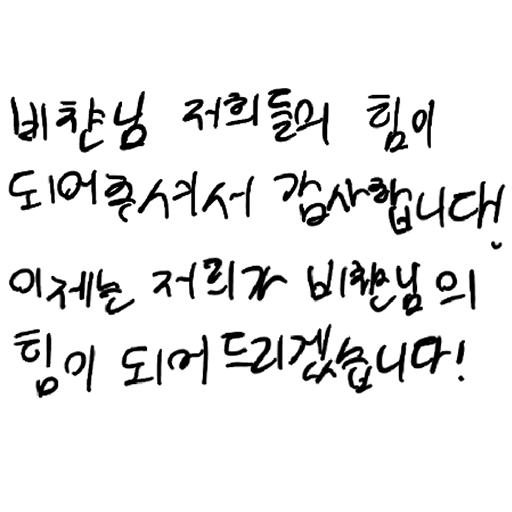 비챤님 저희들의 힘이
되어주셔서 감사합니다!
이제는 저희가 비챤님의
힘이 되어드리겠습니다!